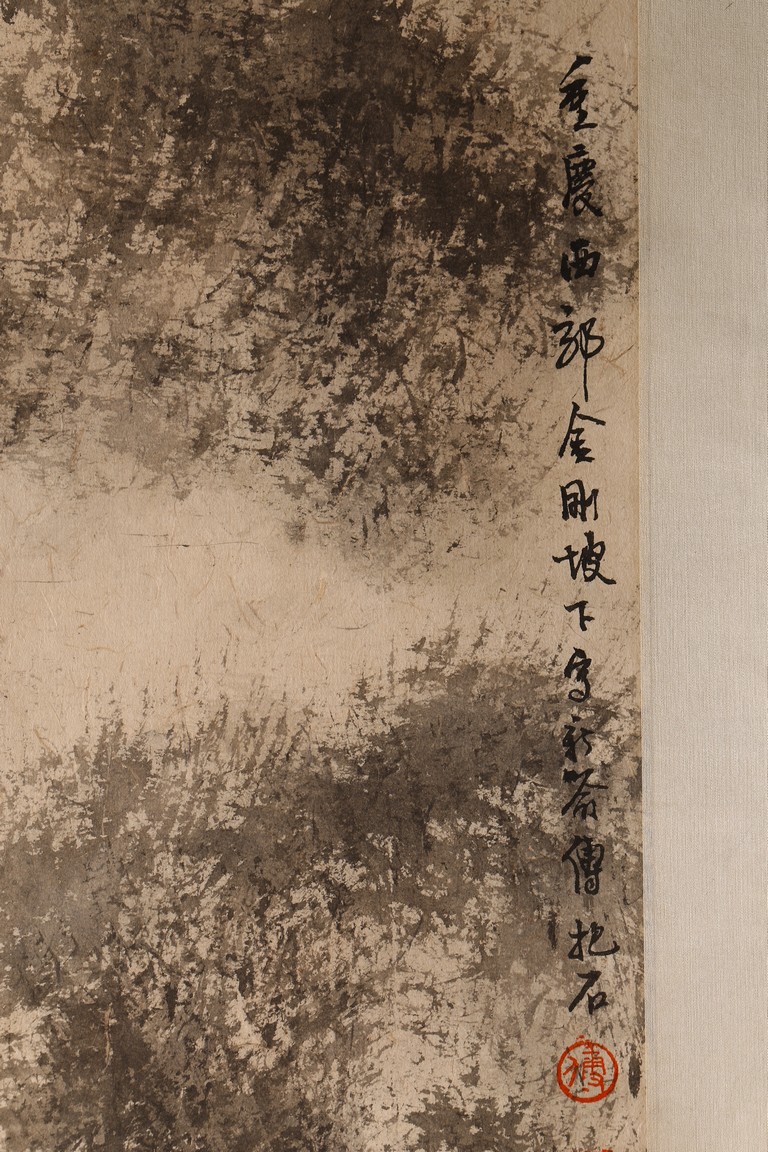 重慶西郭金剛坡下寫新喻傅抱石
傅